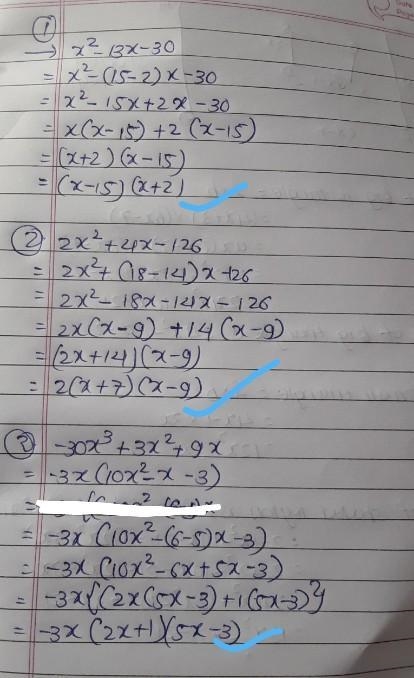 ①
→ x²-13x-30
= x²-(15-2)x-30
= x²-15x+2x-30
= x(x-15)+2(x-15)
= (x+2)(x-15)
= (x-15)(x+2)
② 2x²+4x-126
= 2x²+(18-14)x-126
= 2x²-18x-14x-126
= 2x(x-9)+14(x-9)
= (2x+14)(x-9)
= 2(x+7)(x-9)
③ -30x³+3x²+9x
= -3x(10x²-x-3)
= -3x(10x²-(6-5)x-3)
= -3x(10x²-6x+5x-3)
= -3x{(2x(5x-3)+1(5x-3)}
= -3x(2x+1)(5x-3)